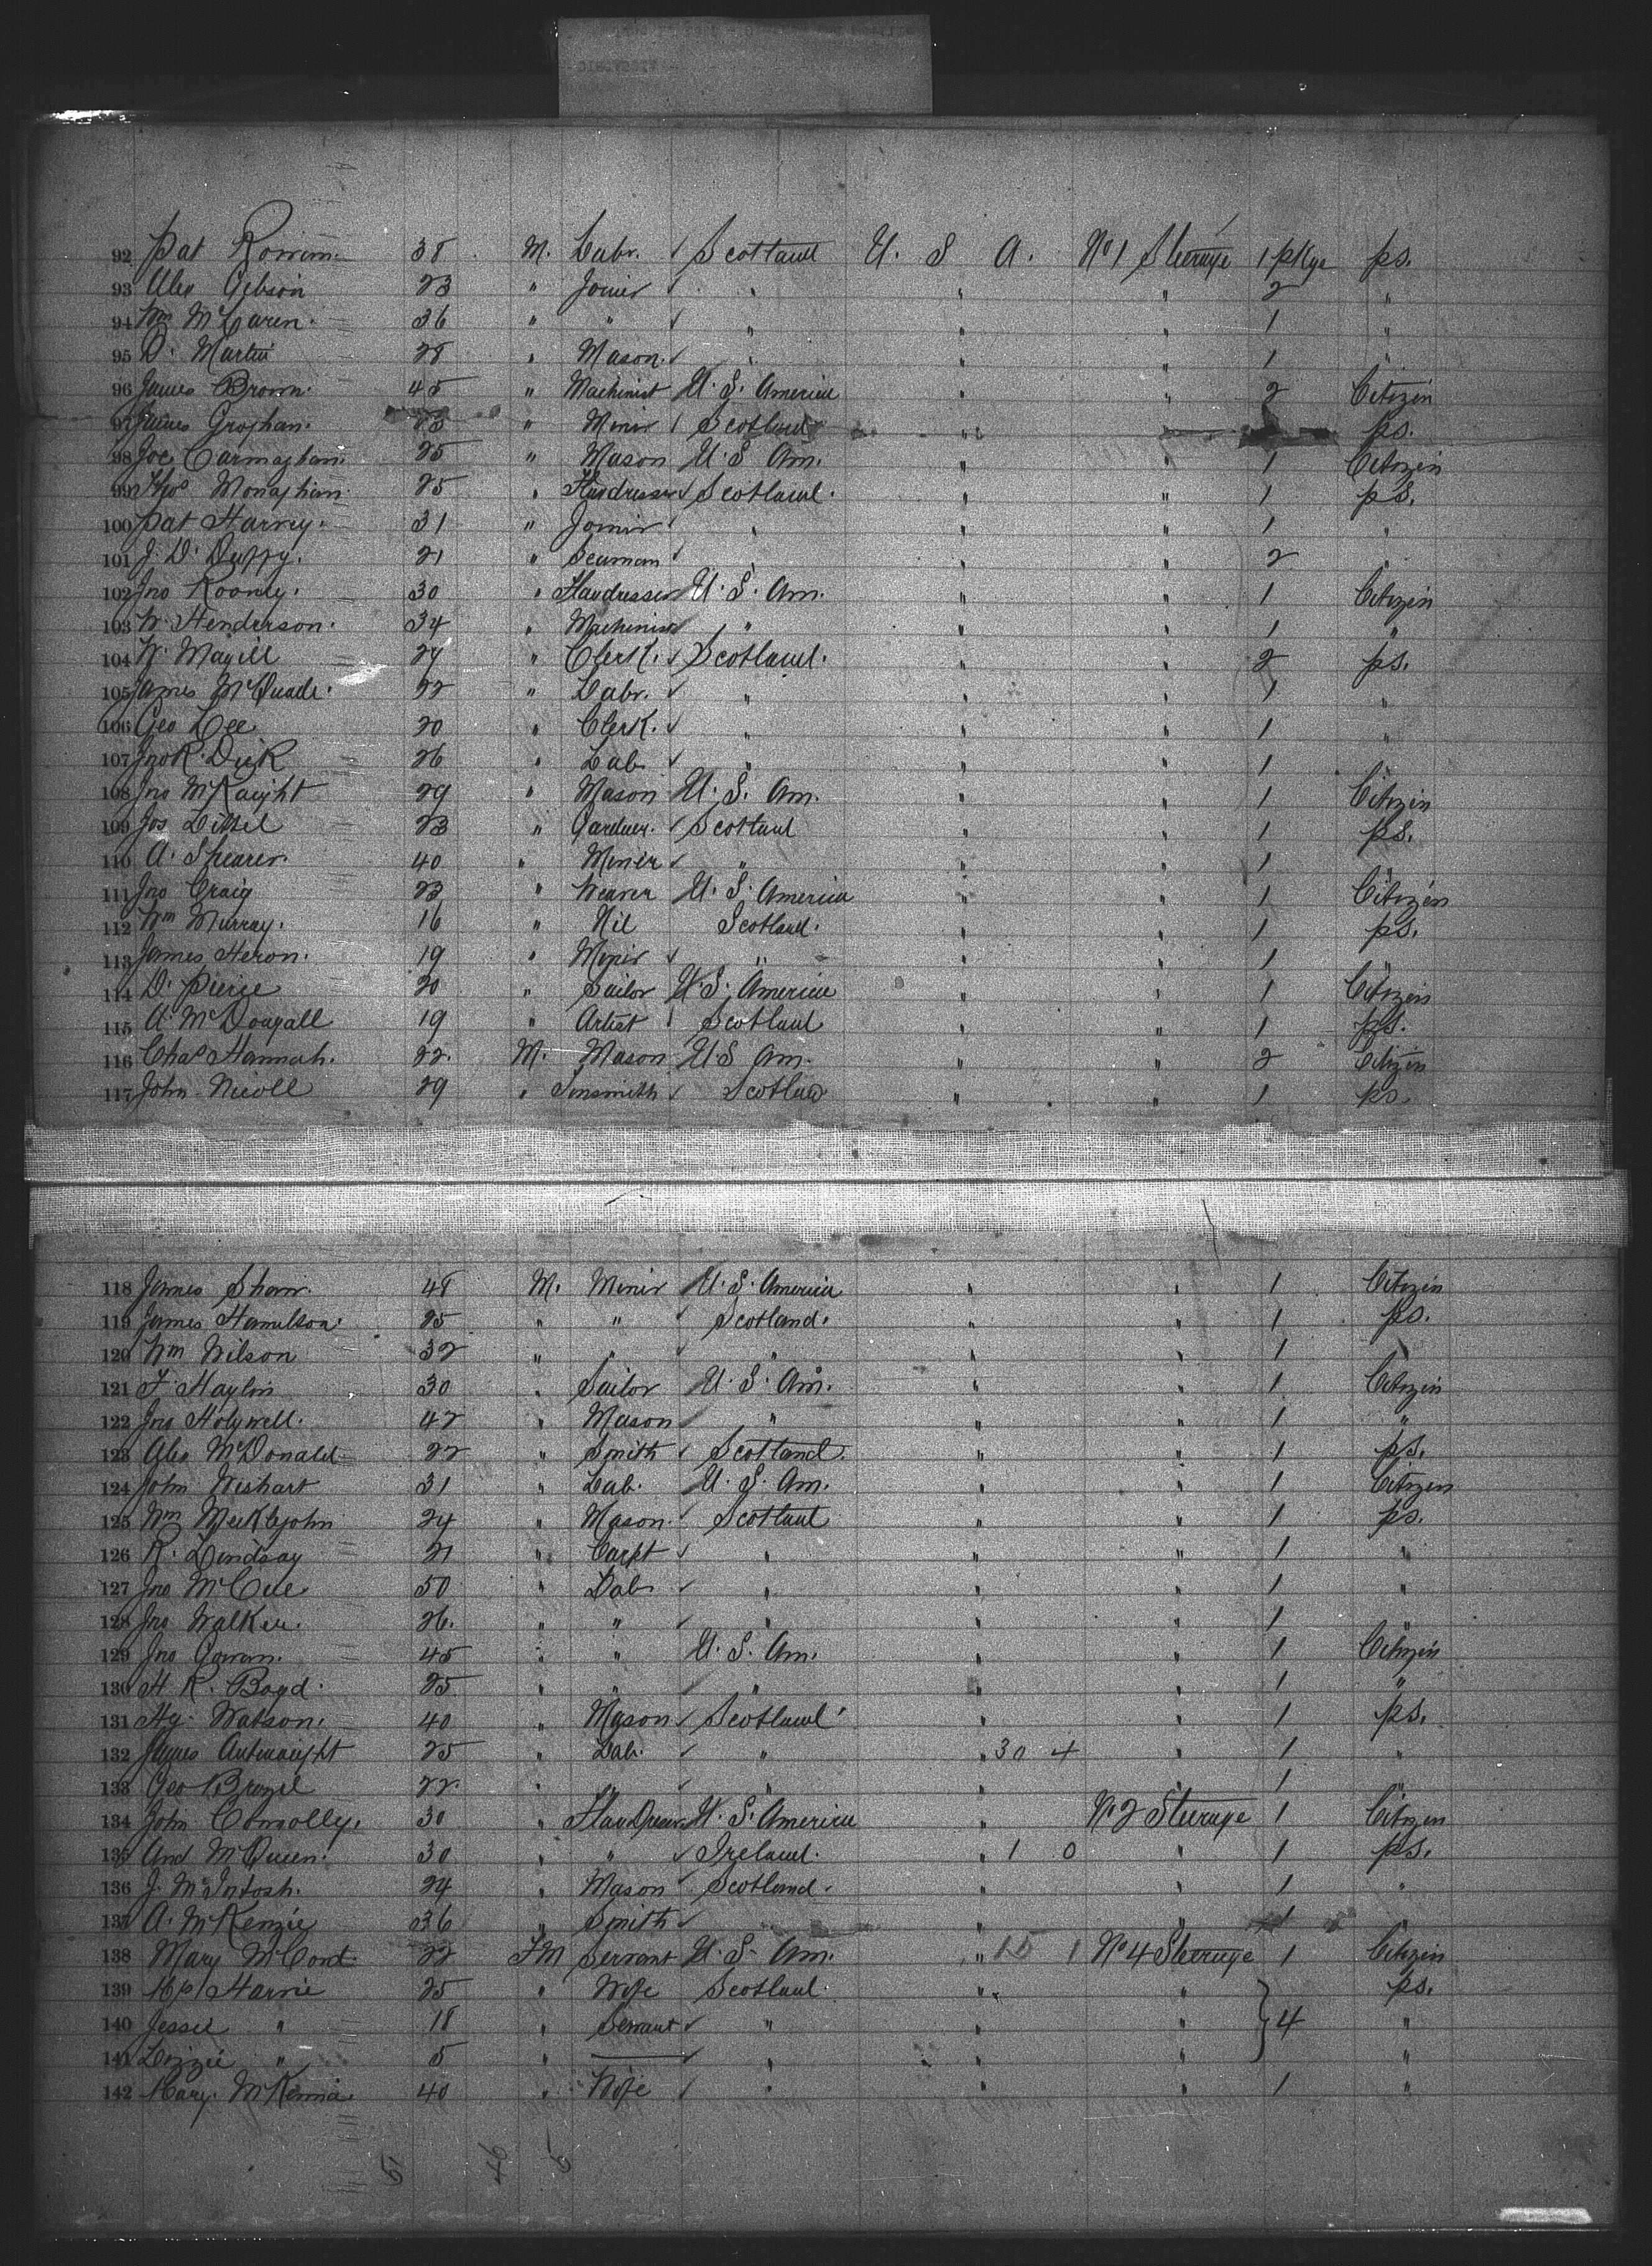 92 Pat 38 M. Labr. ✓ Scotland U. S. A. No 1 Steerage 1 pkge ps.
93 Alex Gibson 23 " Joiner ✓ " " " 2 "
94 Wm McLaren 36 " " ✓ " " " 1 "
95 D. Martin 28 " Mason ✓ " " " 1 "
96 James Brown 45 " Machinist U. S. America " " 2 Citizen
97 James 23 " Miner Scotland " " ps.
98 Joe 25 " Mason U. S. Am. " " 1 Citizen
99 Thos Monaghan 25 " ✓ Scotland " " 1 ps.
100 Pat Harvey 31 " Joiner " " " 1 "
101 J. D. Duffy 21 " Seaman ✓ " " " 2 "
102 Jno 30 " U. S. Am. " " 1 Citizen
103 W. Henderson 34 " Machinist " " " 1 "
104 W. Magill 24 " Clerk ✓ Scotland " " 2 ps.
105 James McQuade 22 " Labr. ✓ " " " 1 "
106 Geo Lee 20 " Clerk. ✓ " " " 1 "
107 Jno R. Dick 26 " Lab ✓ " " " 1
108 Jno 29 " Mason U. S. Am. " " 1 Citizen
109 Jos 23 " Gardner ✓ Scotland " " 1 ps.
110 A. Shearer 40 " Miner ✓ " " " 1 "
111 Jno Craig 23 " Weaver U. S. America " " 1 Citizen
112 Wm Murray 16 " Nil Scotland " " 1 ps.
113 James Heron 19 " Miner ✓ " " " 1 "
114 D. 20 " Sailor U. S. America " " 1 Citizen
115 A. McDougall 19 " Artist Scotland " " 1 ps.
116 Chas Hannah 22 M. Mason U. S. Am. " " 2 Citizen
117 John Nicoll 29 " Tinsmith ✓ Scotland " " 1 ps.
118 James 48 M. Miner U. S. America " " 1 Citizen
119 James Hamilton 25 " " ✓ Scotland " " 1 ps.
120 Wm Wilson 32 " " ✓ " " " 1 "
121 30 " Sailor U. S. Am. " " 1 Citizen
122 Jno Holywell 42 " Mason " " " 1 "
123 Alex McDonald 22 " Smith ✓ Scotland " " 1 ps.
124 John Wishart 31 " Lab. U. S. Am. " " 1 Citizen
125 Wm Meiklejohn 24 " Mason Scotland " " 1 ps.
126 R. Lindsay 21 " Carpt ✓ " " " 1 "
127 Jno McCue 50 " Lab ✓ " " " 1 "
128 Jno Walker 26 " " ✓ " " " 1 "
129 Jno 45 " " U. S. Am. " 1 Citizen
130 H. R. Boyd 25 " " " " " 1 "
131 Hy. Watson 40 " Mason ✓ Scotland " " 1 ps.
132 James 25 " Lab. ✓ " " 30 4 " 1 "
133 Geo 22 " ✓ " " " 1 "
134 John Connolly 30 " U. S. America " No 2 Steerage 1 Citizen
135 And McQueen 30 " " ✓ Ireland " 1 0 " 1 ps.
136 J. McIntosh 24 " Mason Scotland " 1 "
137 A. McKenzie 36 " Smith ✓ " 1
138 Mary 22 Servant U. S. Am. " 15 1 No 4 Steerage 1 Citizen
139 25 " Wife Scotland " " ps.
140 Jessie " 18 " Servant ✓ " " " 4 "
141 Lizzie " 5 " ✓ " " " "
142 Mary McKenna 40 " Wife " " " 1 "